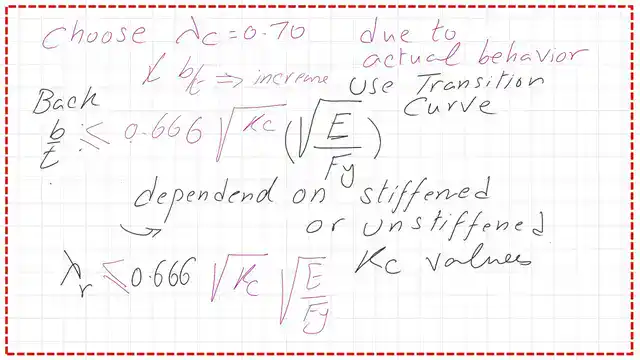 Choose λc = 0.70 due to
actual behavior
& b/t ⇒ increase use Transition
Curve
Back
b/t ≤ 0.666 √Kc (√E/Fy)
dependend on stiffened
or unstiffened
Kc values
λr ≤ 0.666 √Kc √E/Fy